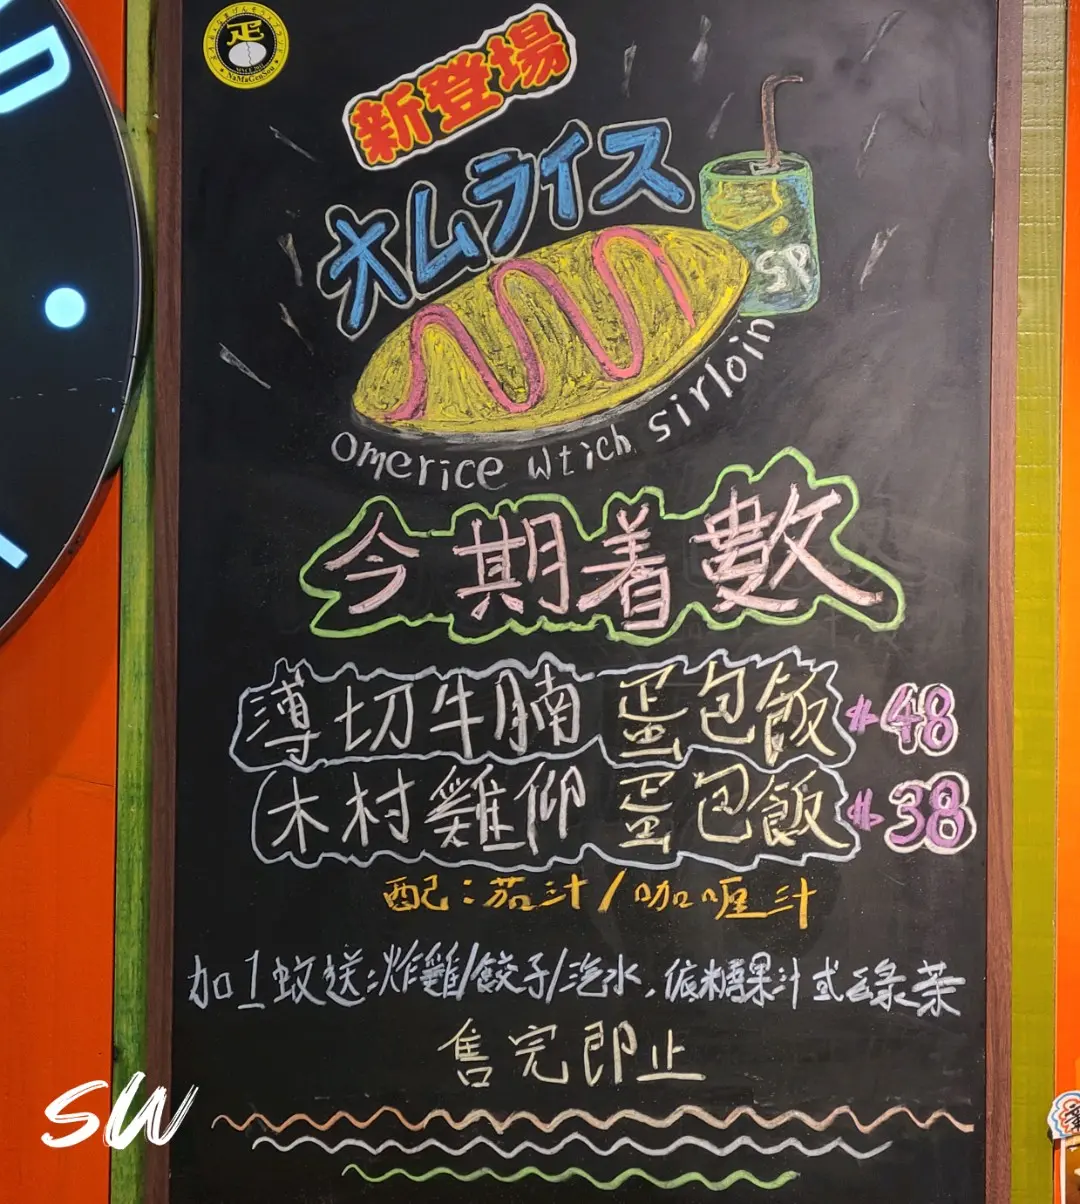 蛋
NaMaGenSou
新登場
オムライス
SP
omerice wtich sirloin
今期着數
薄切牛腩 蛋包飯 $48
木村雞仰 蛋包飯 $38
配：茄汁/咖喱汁
加1蚊送：炸雞/餃子/汽水，低糖果汁或綠茶
售完即止
SW